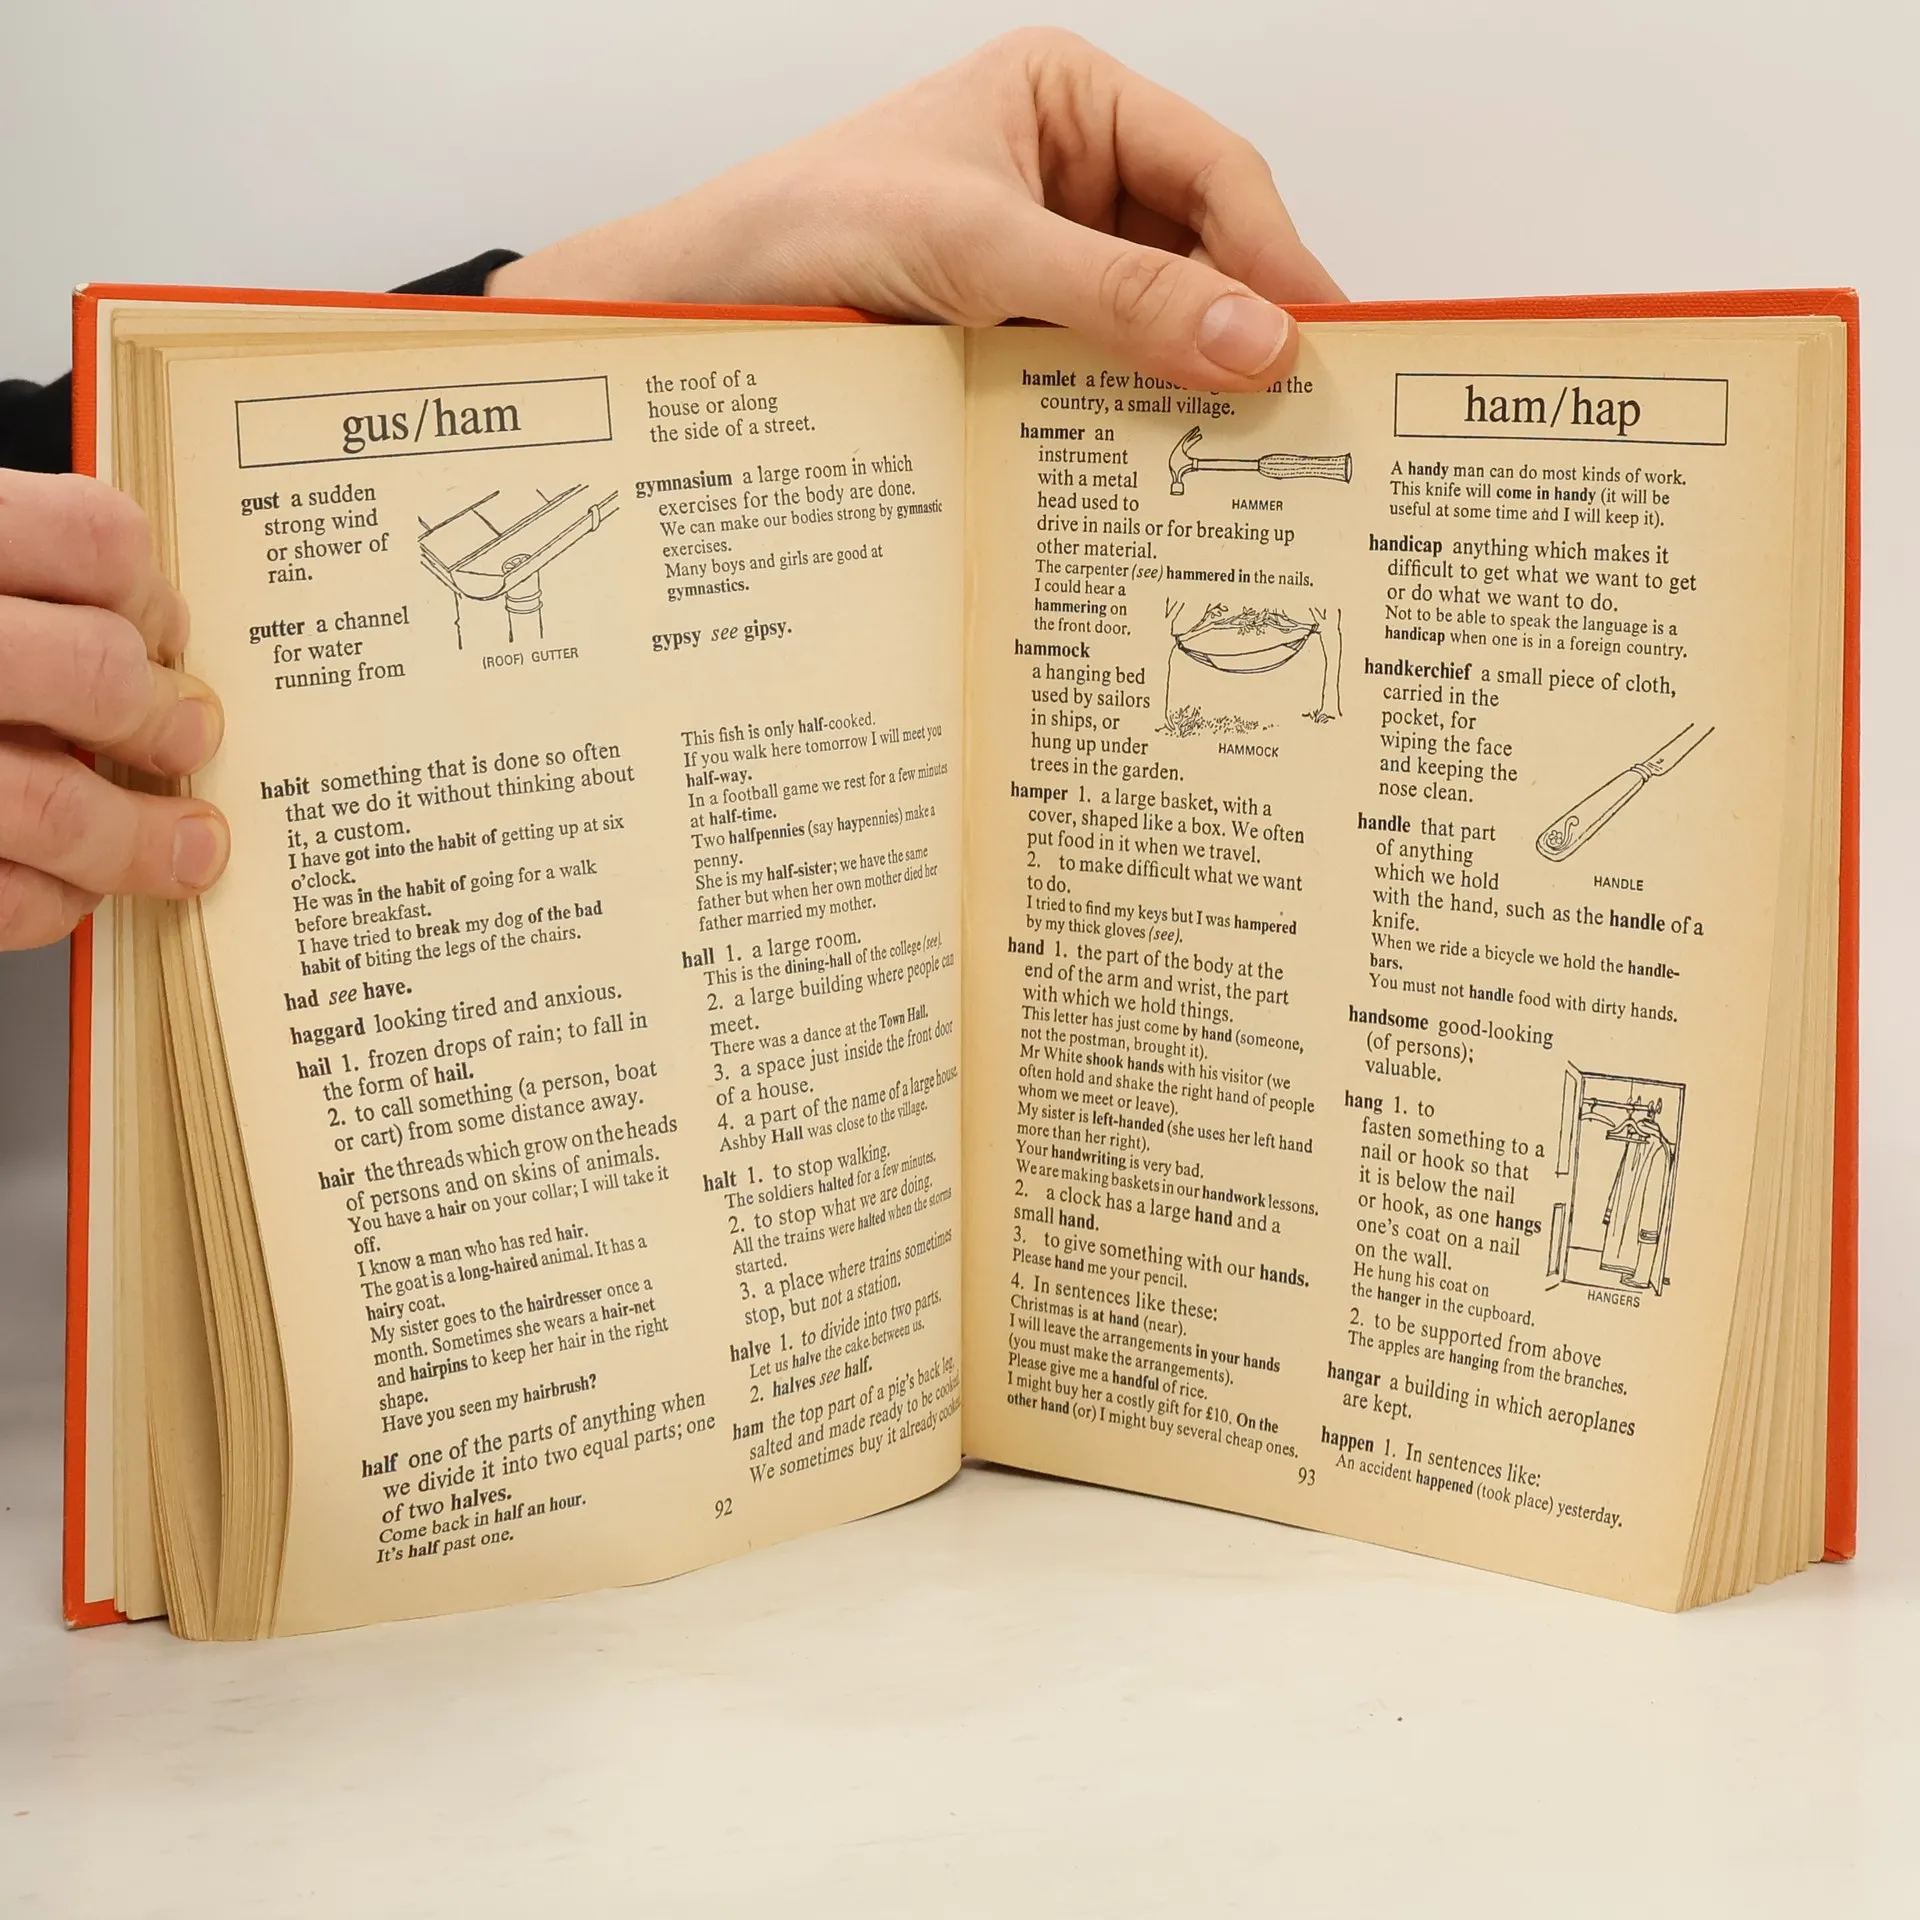 gus/ham
gust a sudden
strong wind
or shower of
rain.
(ROOF) GUTTER
gutter a channel
for water
running from
the roof of a
house or along
the side of a street.
gymnasium a large room in which
exercises for the body are done.
We can make our bodies strong by gymnastic
exercises.
Many boys and girls are good at
gymnastics.
gypsy see gipsy.
habit something that is done so often
that we do it without thinking about
it, a custom.
I have got into the habit of getting up at six
o'clock.
He was in the habit of going for a walk
before breakfast.
I have tried to break my dog of the bad
habit of biting the legs of the chairs.
had see have.
haggard looking tired and anxious.
hail 1. frozen drops of rain; to fall in
the form of hail.
2. to call something (a person, boat
or cart) from some distance away.
hair the threads which grow on the heads
of persons and on skins of animals.
You have a hair on your collar; I will take it
off.
I know a man who has red hair.
The goat is a long-haired animal. It has a
hairy coat.
My sister goes to the hairdresser once a
month. Sometimes she wears a hair-net
and hairpins to keep her hair in the right
shape.
Have you seen my hairbrush?
half one of the parts of anything when
we divide it into two equal parts; one
of two halves.
Come back in half an hour.
It's half past one.
This fish is only half-cooked.
If you walk here tomorrow I will meet you
half-way.
In a football game we rest for a few minutes
at half-time.
Two halfpennies (say haypennies) make a
penny.
She is my half-sister; we have the same
father but when her own mother died her
father married my mother.
hall 1. a large room.
This is the dining-hall of the college (see).
2. a large building where people can
meet.
There was a dance at the Town Hall.
3. a space just inside the front door
of a house.
4. a part of the name of a large house.
Ashby Hall was close to the village.
halt 1. to stop walking.
The soldiers halted for a few minutes.
2. to stop what we are doing.
All the trains were halted when the storms
started.
3. a place where trains sometimes
stop, but not a station.
halve 1. to divide into two parts.
Let us halve the cake between us.
2. halves see half.
ham the top part of a pig's back leg,
salted and made ready to be cooked.
We sometimes buy it already cooked.
92
hamlet a few in the
country, a small village.
hammer an
instrument
with a metal
head used to
drive in nails or for breaking up
other material.
HAMMER
The carpenter (see) hammered in the nails.
I could hear a
hammering on
the front door.
hammock
a hanging bed
used by sailors
in ships, or
hung up under
trees in the garden.
HAMMOCK
hamper 1. a large basket, with a
cover, shaped like a box. We often
put food in it when we travel.
2. to make difficult what we want
to do.
I tried to find my keys but I was hampered
by my thick gloves (see).
hand 1. the part of the body at the
end of the arm and wrist, the part
with which we hold things.
This letter has just come by hand (someone,
not the postman, brought it).
Mr White shook hands with his visitor (we
often hold and shake the right hand of people
whom we meet or leave).
My sister is left-handed (she uses her left hand
more than her right).
Your handwriting is very bad.
We are making baskets in our handwork lessons.
2. a clock has a large hand and a
small hand.
3. to give something with our hands.
Please hand me your pencil.
4. In sentences like these:
Christmas is at hand (near).
I will leave the arrangements in your hands
(you must make the arrangements).
Please give me a handful of rice.
I might buy her a costly gift for £10. On the
other hand (or) I might buy several cheap ones.
93
ham/hap
A handy man can do most kinds of work.
This knife will come in handy (it will be
useful at some time and I will keep it).
handicap anything which makes it
difficult to get what we want to get
or do what we want to do.
Not to be able to speak the language is a
handicap when one is in a foreign country.
handkerchief a small piece of cloth,
carried in the
pocket, for
wiping the face
and keeping the
nose clean.
handle that part
of anything
which we hold
with the hand, such as the handle of a
knife.
HANDLE
When we ride a bicycle we hold the handle-
bars.
You must not handle food with dirty hands.
handsome good-looking
(of persons);
valuable.
hang 1. to
fasten something to a
nail or hook so that
it is below the nail
or hook, as one hangs
one's coat on a nail
on the wall.
He hung his coat on
the hanger in the cupboard.
HANGERS
2. to be supported from above
The apples are hanging from the branches.
hangar a building in which aeroplanes
are kept.
happen 1. In sentences like:
An accident happened (took place) yesterday.